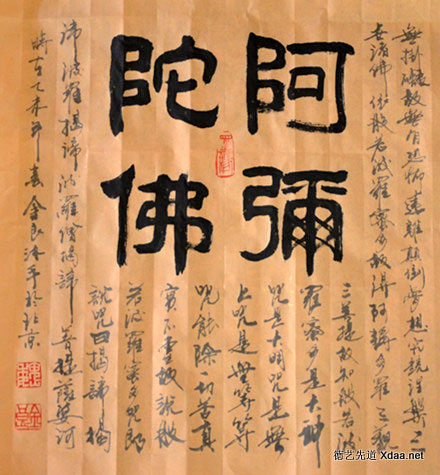 阿彌
陀佛
無掛礙故無有恐怖遠離顛倒夢想究竟涅槃三
世諸佛依般若波羅蜜多故得阿耨多羅三藐
三菩提故知般若波
羅蜜多是大神
咒是大明咒是無
上咒是無等等
咒能除一切苦真
實不虛故說般
若波羅蜜多咒即
說咒曰揭諦揭
諦波羅揭諦波羅僧揭諦菩提薩婆訶
時在乙未年春金良沐手於北京
德艺先道 Xdaa.net